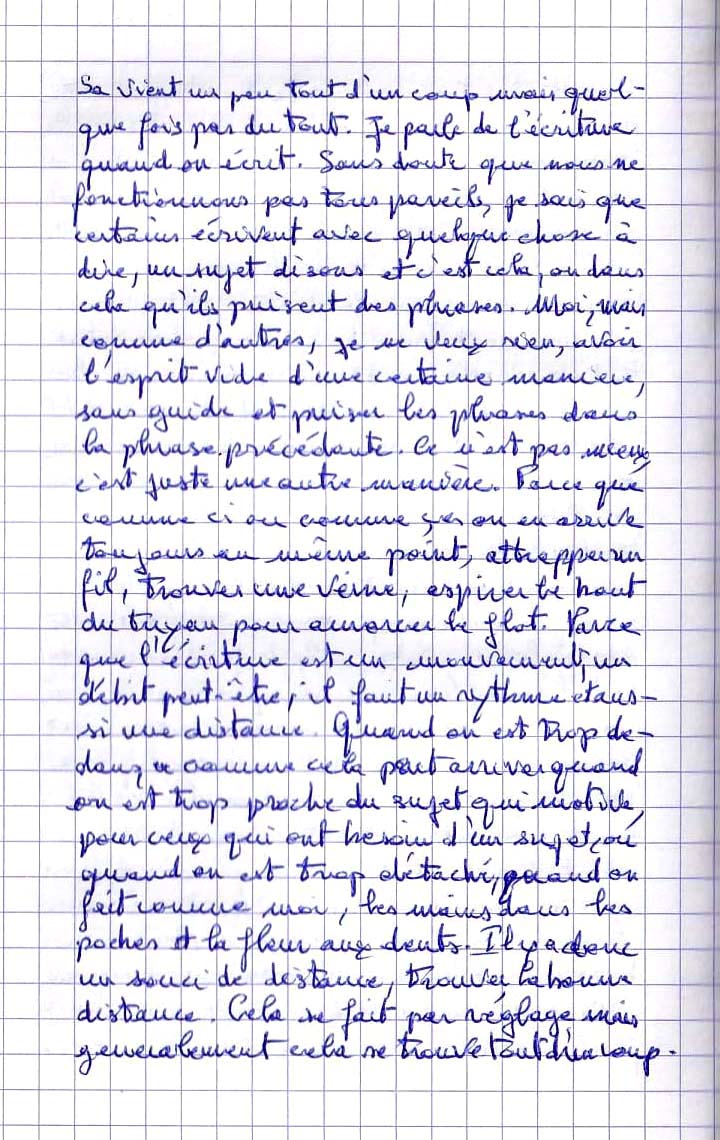 Sa vient un peu tout d'un coup mais quel-
que fois pas du tout. Je parle de l'écriture
quand on écrit. Sans doute que nous ne
fonctionnons pas tous pareils, je sais que
certains écrivent avec quelque chose à
dire, un sujet disons et c'est cela, ou dans
cela qu'ils puisent des phrases. Moi, mais
comme d'autres, je ne veux rien, avoir
l'esprit vide d'une certaine manière,
sans guide et puiser les phrases dans
la phrase précédante. Ce n'est pas mieux,
c'est juste une autre manière. Parce que
comme ci ou comme ça on en arrive
toujours au même point, attrapper un
fil, trouver une veine, aspirer le bout
du tuyau pour amorcer le flot. Parce
que l'écriture est un mouvement, un
débit peut-être, il faut un rythme et aus-
si une distance. Quand on est trop de-
dans comme cela peut arriver quand
on est trop proche du sujet qui motive,
pour ceux qui ont besoin d'un sujet, ou
quand on est trop détaché, quand on
fait comme moi, les mains dans les
poches et la fleur aux dents. Il y a donc
un souci de distance, trouver la bonne
distance. Cela se fait par réglage mais
generalement cela se trouve tout d'un coup.